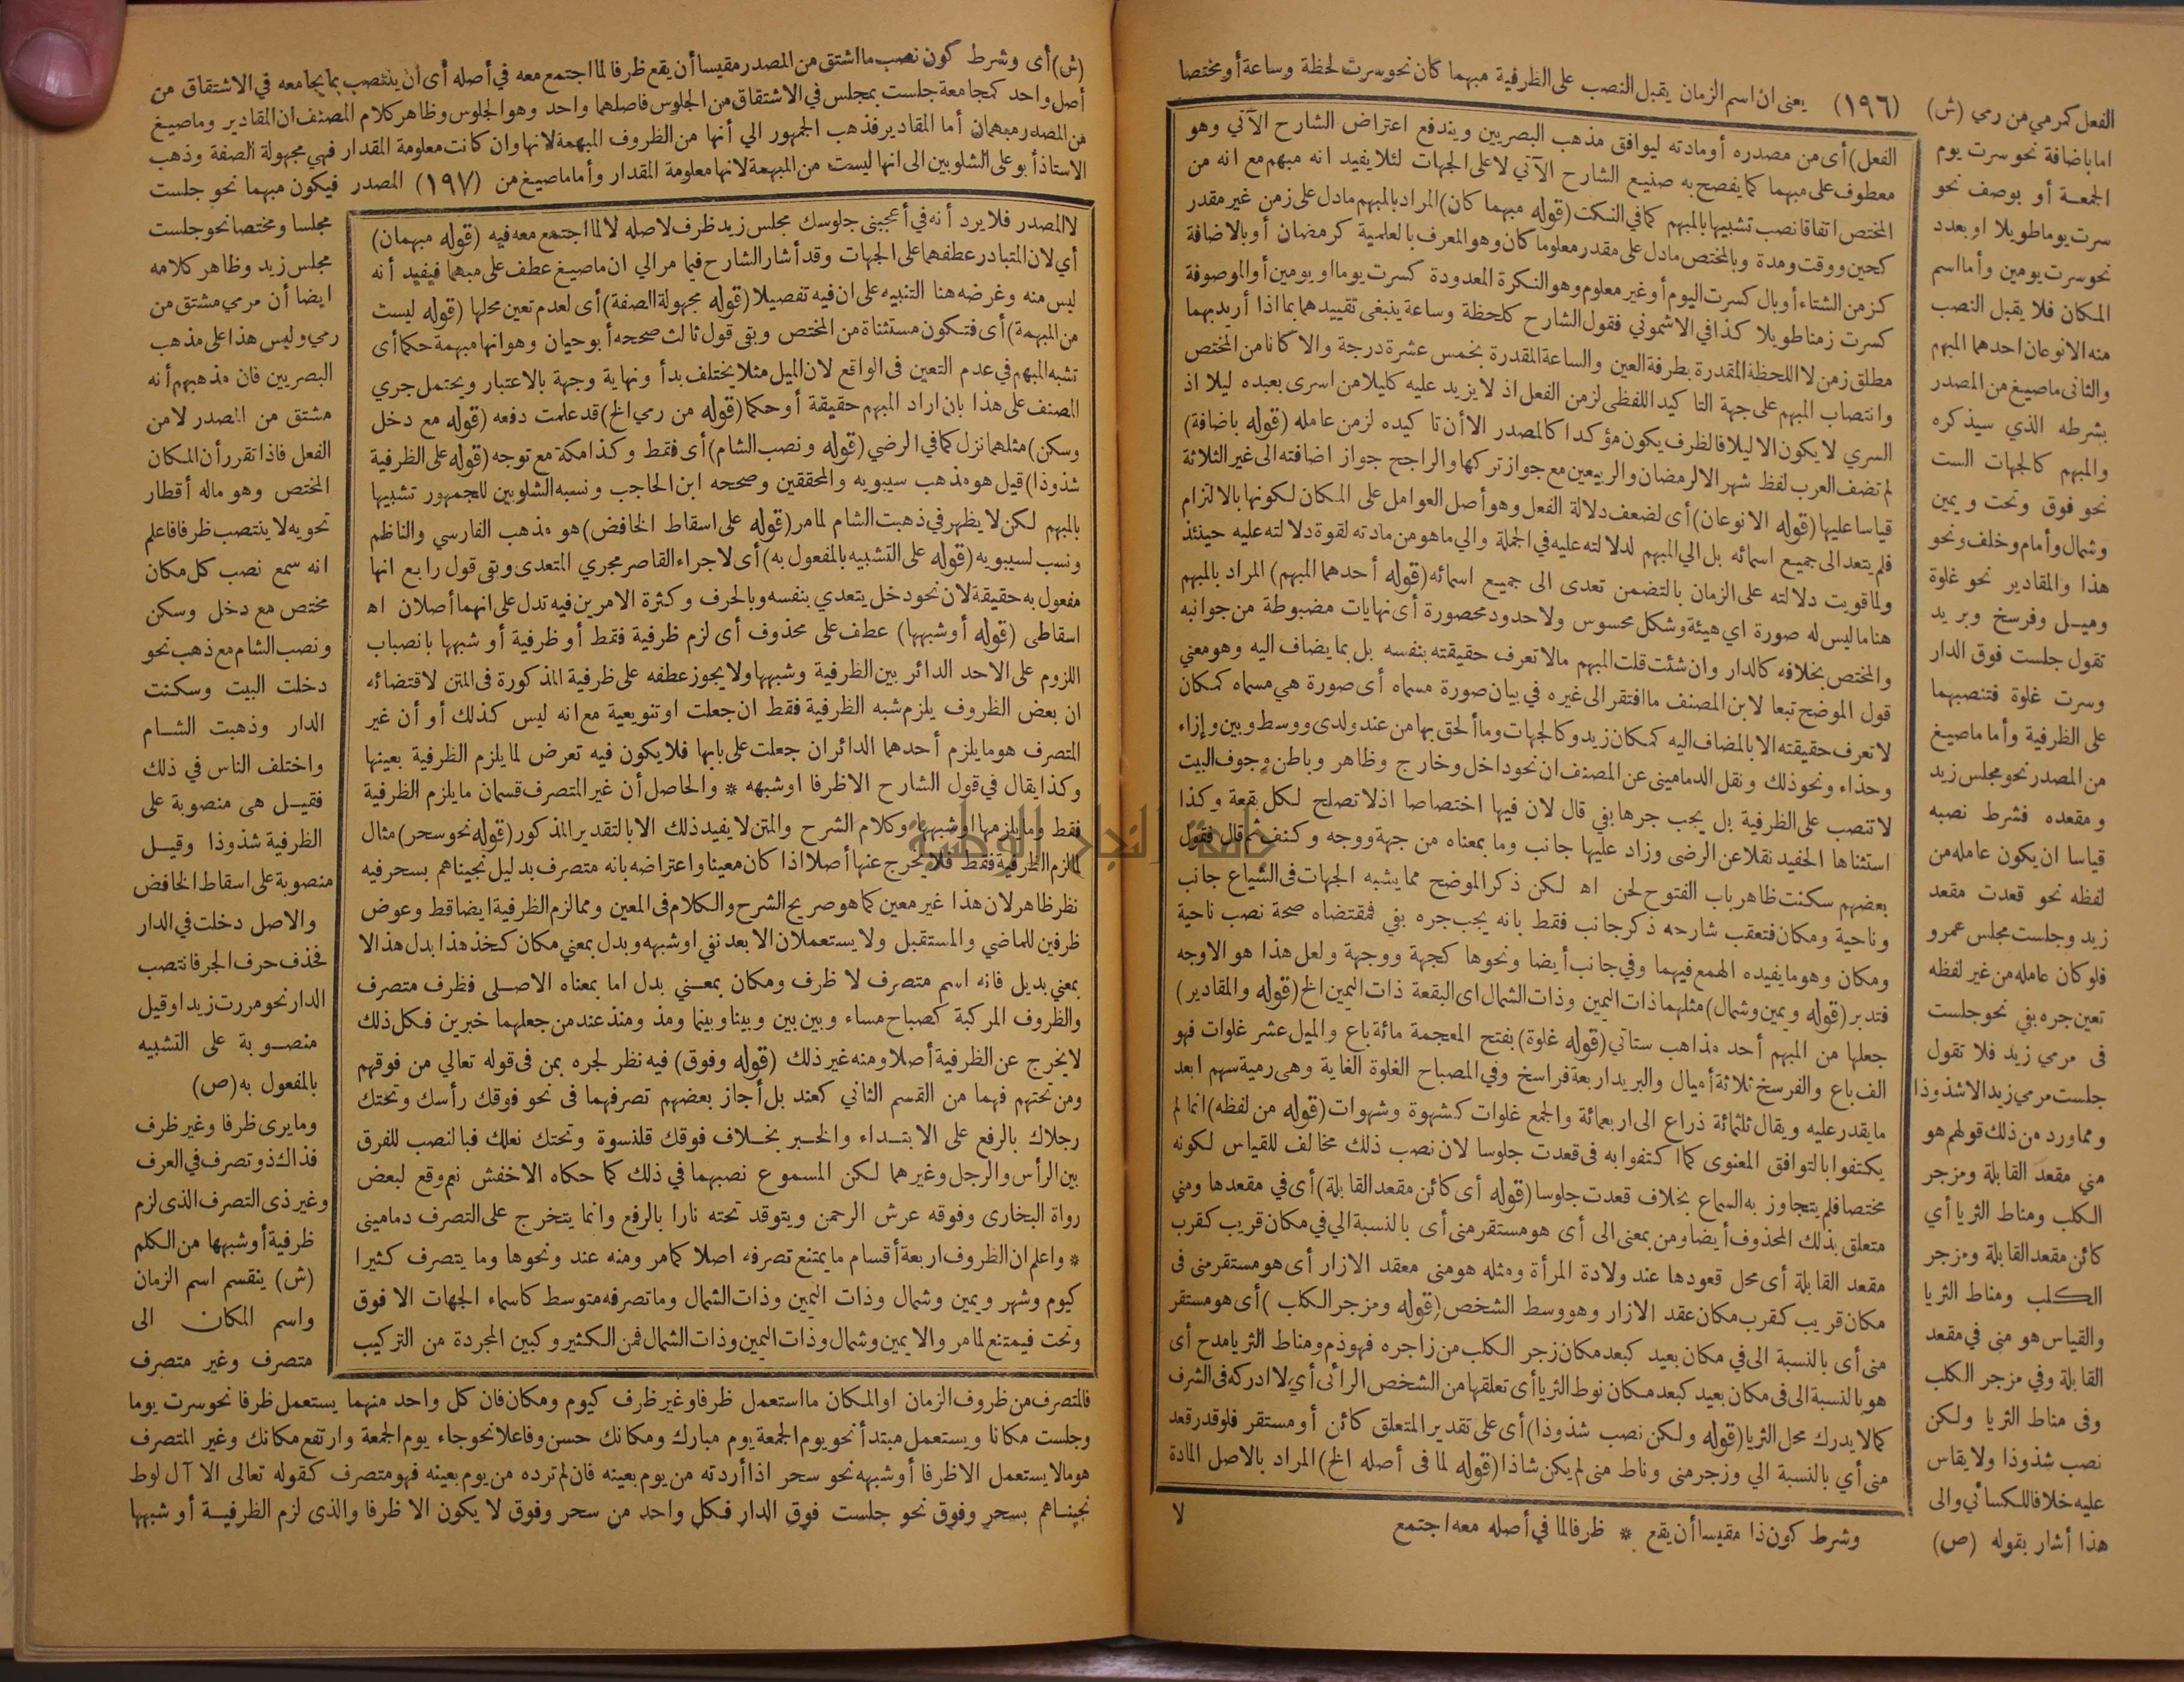 الفعل كمرمي من رمي (ش) (١٩٦) يعنى ان اسم الزمان يقبل النصب على الظرفية مبهما كان نحو سرت لحظة وساعة أو مختصا
اما باضافة نحو سرت يوم
الجمعة أو بوصف نحو
سرت يوما طويلا او بعدد
نحو سرت يومين وأما اسم
المكان فلا يقبل النصب
منه الا نوعان احدهما المبهم
والثانى ما صيغ من المصدر
بشرطه الذي سيذكره
والمبهم كالجهات الست
نحو فوق وتحت ويمين
وشمال وأمام وخلف ونحو
هذا والمقادير نحو غلوة
وميل وفرسخ وبريد
تقول جلست فوق الدار
وسرت غلوة فتنصبهما
على الظرفية وأما ما صيغ
من المصدر نحو مجلس زيد
ومقعده فشرط نصبه
قياسا ان يكون عامله من
لفظه نحو قعدت مقعد
زيد وجلست مجلس عمرو
فلو كان عامله من غير لفظه
تعين جره بفي نحو جلست
فى مرمي زيد فلا تقول
جلست مرمي زيد الا شذوذا
ومما ورد من ذلك قولهم هو
مني مقعد القابلة ومزجر
الكلب ومناط الثريا أي
كائن مقعد القابلة ومزجر
الكلب ومناط الثريا
والقياس هو منى في مقعد
القابلة وفي مزجر الكلب
وفى مناط الثريا ولكن
نصب شذوذا ولا يقاس
عليه خلافا للكسائي والى
هذا أشار بقوله (ص)
وشرط كون ذا مقيسا أن يقع * ظرفا لما في أصله معه اجتمع
الفعل) أى من مصدره أو مادته ليوافق مذهب البصريين ويندفع اعتراض الشارح الآتي وهو
معطوف على مبهما كما يفصح به صنيع الشارح الآتي لا على الجهات لئلا يفيد انه مبهم مع انه من
المختص اتفاقا نصب تشبيها بالمبهم كما في النكت (قوله مبهما كان) المراد بالمبهم ما دل على زمن غير مقدر
كحين ووقت ومدة وبالمختص ما دل على مقدر معلوما كان وهو المعرف بالعلمية كرمضان أو بالاضافة
كزمن الشتاء أو بال كسرت اليوم أو غير معلوم وهو النكرة المعدودة كسرت يوما او يومين أو الموصوفة
كسرت زمنا طويلا كذا في الاشموني فقول الشارح كلحظة وساعة ينبغى تقييدهما بما اذا أريد بهما
مطلق زمن لا اللحظة المقدرة بطرفة العين والساعة المقدرة بخمس عشرة درجة والا كانا من المختص
وانتصاب المبهم على جهة التاكيد اللفظى لزمن الفعل اذ لا يزيد عليه كليلا من اسرى بعبده ليلا اذ
السري لا يكون الا ليلا فالظرف يكون مؤكدا كالمصدر الا أن تاكيده لزمن عامله (قوله باضافة)
لم تضف العرب لفظ شهر الا لرمضان والربيعين مع جواز تركها والراجح جواز اضافته الى غير الثلاثة
قياسا عليها (قوله الا نوعان) أى لضعف دلالة الفعل وهو أصل العوامل على المكان لكونها بالالتزام
فلم يتعد الى جميع اسمائه بل الي المبهم لدلالته عليه في الجملة والي ما هو من مادته لقوة دلالته عليه حينئذ
ولما قويت دلالته على الزمان بالتضمن تعدى الى جميع اسمائه (قوله أحدهما المبهم) المراد بالمبهم
هنا ما ليس له صورة اي هيئة وشكل محسوس ولا حدود محصورة أى نهايات مضبوطة من جوانبه
والمختص بخلافه كالدار وان شئت قلت المبهم مالا تعرف حقيقته بنفسه بل بما يضاف اليه وهو معني
قول الموضح تبعا لابن المصنف ما افتقر الى غيره في بيان صورة مسماه أى صورة هي مسماه كمكان
لا تعرف حقيقته الا بالمضاف اليه كمكان زيد وكالجهات وما ألحق بها من عند ولدى ووسط وبين وإزاء
وحذاء ونحو ذلك ونقل الدماميني عن المصنف ان نحو داخل وخارج وظاهر وباطن وجوف البيت
لا تنصب على الظرفية بل يجب جرها بفي قال لان فيها اختصاصا اذ لا تصلح لكل بقعة وكذا
استثناها الحفيد نقلا عن الرضى وزاد عليها جانب وما بمعناه من جهة ووجه وكنف ثم قال فقول
بعضهم سكنت ظاهر باب الفتوح لحن اه لكن ذكر الموضح مما يشبه الجهات فى الشياع جانب
وناحية ومكان فتعقب شارحه ذكر جانب فقط بانه يجب جره بفي فمقتضاه صحة نصب ناحية
ومكان وهو ما يفيده الهمع فيهما وفي جانب أيضا ونحوها كجهة ووجهة ولعل هذا هو الاوجه
فتدبر (قوله ويمين وشمال) مثلهما ذات اليمين وذات الشمال اى البقعة ذات اليمين الخ (قوله والمقادير)
جعلها من المبهم أحد مذاهب ستاتي (قوله غلوة) بفتح المعجمة مائة باع والميل عشر غلوات فهو
الف باع والفرسخ ثلاثة أميال والبريد اربعة فراسخ وفي المصباح الغلوة الغاية وهى رمية سهم ابعد
ما يقدر عليه ويقال ثلثمائة ذراع الى اربعمائة والجمع غلوات كشهوة وشهوات (قوله من لفظه) انما لم
يكتفوا بالتوافق المعنوى كما اكتفوا به فى قعدت جلوسا لان نصب ذلك مخالف للقياس لكونه
مختصا فلم يتجاوز به السماع بخلاف قعدت جلوسا (قوله أى كائن مقعد القابلة) أى في مقعدها ومني
متعلق بذلك المحذوف أيضا ومن بمعنى الى أى هو مستقر منى أى بالنسبة الي في مكان قريب كقرب
مقعد القابلة أى محل قعودها عند ولادة المرأة ومثله هو منى معقد الازار أى هو مستقر منى فى
مكان قريب كقرب مكان عقد الازار وهو وسط الشخص (قوله ومزجر الكلب) أى هو مستقر
منى أى بالنسبة الى في مكان بعيد كبعد مكان زجر الكلب من زاجره فهو ذم ومناط الثريا مدح أى
هو بالنسبة الى فى مكان بعيد كبعد مكان نوط الثريا أى تعلقها من الشخص الرأئى أي لا ادركه فى الشرف
كما لا يدرك محل الثريا (قوله ولكن نصب شذوذا) أى على تقدير المتعلق كائن أو مستقر فلو قدر قعد
منى أي بالنسبة الي وزجر منى وناط منى لم يكن شاذا (قوله لما فى أصله الخ) المراد بالاصل المادة
لا
(ش) أى وشرط كون نصب ما اشتق من المصدر مقيسا أن يقع ظرفا لما اجتمع معه في أصله أى أن ينتصب بما يجامعه في الاشتقاق من
أصل واحد كمجامعة جلست بمجلس في الاشتقاق من الجلوس فاصلهما واحد وهو الجلوس وظاهر كلام المصنف ان المقادير وما صيغ
من المصدر مبهمان أما المقادير فذهب الجمهور الي أنها من الظروف المبهمة لانها وان كانت معلومة المقدار فهي مجهولة الصفة وذهب
الاستاذ أبو على الشلوبين الى انها ليست من المبهمة لانها معلومة المقدار وأما ما صيغ من (١٩٧) المصدر فيكون مبهما نحو جلست
مجلسا ومختصا نحو جلست
مجلس زيد وظاهر كلامه
ايضا أن مرمي مشتق من
رمي وليس هذا على مذهب
البصريين فان مذهبهم أنه
مشتق من المصدر لا من
الفعل فاذا تقرر أن المكان
المختص وهو ماله أقطار
تحويه لا ينتصب ظرفا فاعلم
انه سمع نصب كل مكان
مختص مع دخل وسكن
ونصب الشام مع ذهب نحو
دخلت البيت وسكنت
الدار وذهبت الشام
واختلف الناس في ذلك
فقيل هى منصوبة على
الظرفية شذوذا وقيل
منصوبة على اسقاط الخافض
والاصل دخلت في الدار
فحذف حرف الجر فانتصب
الدار نحو مررت زيدا وقيل
منصوبة على التشبيه
بالمفعول به (ص)
وما يرى ظرفا وغير ظرف
فذاك ذو تصرف في العرف
وغير ذى التصرف الذى لزم
ظرفية أو شبهها من الكلم
(ش) ينقسم اسم الزمان
واسم المكان الى
متصرف وغير متصرف
لا المصدر فلا يرد أنه في أعجبنى جلوسك مجلس زيد ظرف لاصله لا لما اجتمع معه فيه (قوله مبهمان)
أي لان المتبادر عطفهما على الجهات وقد أشار الشارح فيما مر الي ان ما صيغ عطف على مبهما فيفيد أنه
ليس منه وغرضه هنا التنبيه على ان فيه تفصيلا (قوله مجهولة الصفة) أى لعدم تعين محلها (قوله ليست
من المبهمة) أى فتكون مستثناة من المختص وبقى قول ثالث صححه أبو حيان وهو انها مبهمة حكما أى
تشبه المبهم في عدم التعين فى الواقع لان الميل مثلا يختلف بدأ ونهاية وجهة بالاعتبار ويحتمل جري
المصنف على هذا بان اراد المبهم حقيقة أو حكما (قوله من رمي الخ) قد علمت دفعه (قوله مع دخل
وسكن) مثلهما نزل كما في الرضي (قوله ونصب الشام) أى فقط وكذا مكة مع توجه (قوله على الظرفية
شذوذا) قيل هو مذهب سيبويه والمحققين وصححه ابن الحاجب ونسبه الشلوبين للجمهور تشبيها
بالمبهم لكن لا يظهر في ذهبت الشام لما مر (قوله على اسقاط الخافض) هو مذهب الفارسي والناظم
ونسب لسيبويه (قوله على التشبيه بالمفعول به) أى لاجراء القاصر مجري المتعدى وبقى قول رابع انها
مفعول به حقيقة لان نحو دخل يتعدي بنفسه وبالحرف وكثرة الامرين فيه تدل على انهما أصلان اه
اسقاطى (قوله أو شبهها) عطف على محذوف أى لزم ظرفية فقط أو ظرفية أو شبهها بانصباب
اللزوم على الاحد الدائر بين الظرفية وشبهها ولا يجوز عطفه على ظرفية المذكورة فى المتن لاقتضائه
ان بعض الظروف يلزم شبه الظرفية فقط ان جعلت او تنويعية مع انه ليس كذلك أو أن غير
المتصرف هو ما يلزم أحدهما الدائر ان جعلت على بابها فلا يكون فيه تعرض لما يلزم الظرفية بعينها
وكذا يقال في قول الشارح الا ظرفا او شبهه * والحاصل أن غير المتصرف قسمان ما يلزم الظرفية
فقط وما يلزمها او شبهها وكلام الشرح والمتن لا يفيد ذلك الا بالتقدير المذكور (قوله نحو سحر) مثال
للازم الظرفية فقط فلا يخرج عنها أصلا اذا كان معينا واعتراضه بانه متصرف بدليل نجيناهم بسحر فيه
نظر ظاهر لان هذا غير معين كما هو صريح الشرح والكلام فى المعين ومما لزم الظرفية ايضا قط وعوض
ظرفين للماضي والمستقبل ولا يستعملان الا بعد نفي او شبهه وبدل بمعني مكان كخذ هذا بدل هذا لا
بمعني بديل فانه اسم متصرف لا ظرف ومكان بمعني بدل اما بمعناه الاصلى فظرف متصرف
والظروف المركبة كصباح مساء وبين بين وبينا وبينما ومذ ومنذ عند من جعلهما خبرين فكل ذلك
لا يخرج عن الظرفية أصلا ومنه غير ذلك (قوله وفوق) فيه نظر لجره بمن فى قوله تعالي من فوقهم
ومن تحتهم فهما من القسم الثاني كعند بل أجاز بعضهم تصرفهما فى نحو فوقك رأسك وتحتك
رجلاك بالرفع على الابتداء والخبر بخلاف فوقك قلنسوة وتحتك نعلك فبالنصب للفرق
بين الرأس والرجل وغيرهما لكن المسموع نصبهما في ذلك كما حكاه الاخفش نعم وقع لبعض
رواة البخارى وفوقه عرش الرحمن ويتوقد تحته نارا بالرفع وانما يتخرج على التصرف دماميني
* واعلم ان الظروف اربعة أقسام ما يمتنع تصرفه اصلا كما مر ومنه عند ونحوها وما يتصرف كثيرا
كيوم وشهر ويمين وشمال وذات اليمين وذات الشمال وما تصرفه متوسط كاسماء الجهات الا فوق
وتحت فيمتنع لما مر والا يمين وشمال وذات اليمين وذات الشمال فمن الكثير وكبين المجردة من التركيب
فالمتصرف من ظروف الزمان او المكان ما استعمل ظرفا وغير ظرف كيوم ومكان فان كل واحد منهما يستعمل ظرفا نحو سرت يوما
وجلست مكانا ويستعمل مبتدأ نحو يوم الجمعة يوم مبارك ومكانك حسن وفاعلا نحو جاء يوم الجمعة وارتفع مكانك وغير المتصرف
هو مالا يستعمل الا ظرفا أو شبهه نحو سحر اذا أردته من يوم بعينه فان لم ترده من يوم بعينه فهو متصرف كقوله تعالى الا آل لوط
نجيناهم بسحر وفوق نحو جلست فوق الدار فكل واحد من سحر وفوق لا يكون الا ظرفا والذى لزم الظرفية أو شبهها
جامعة النجاح الوطنية